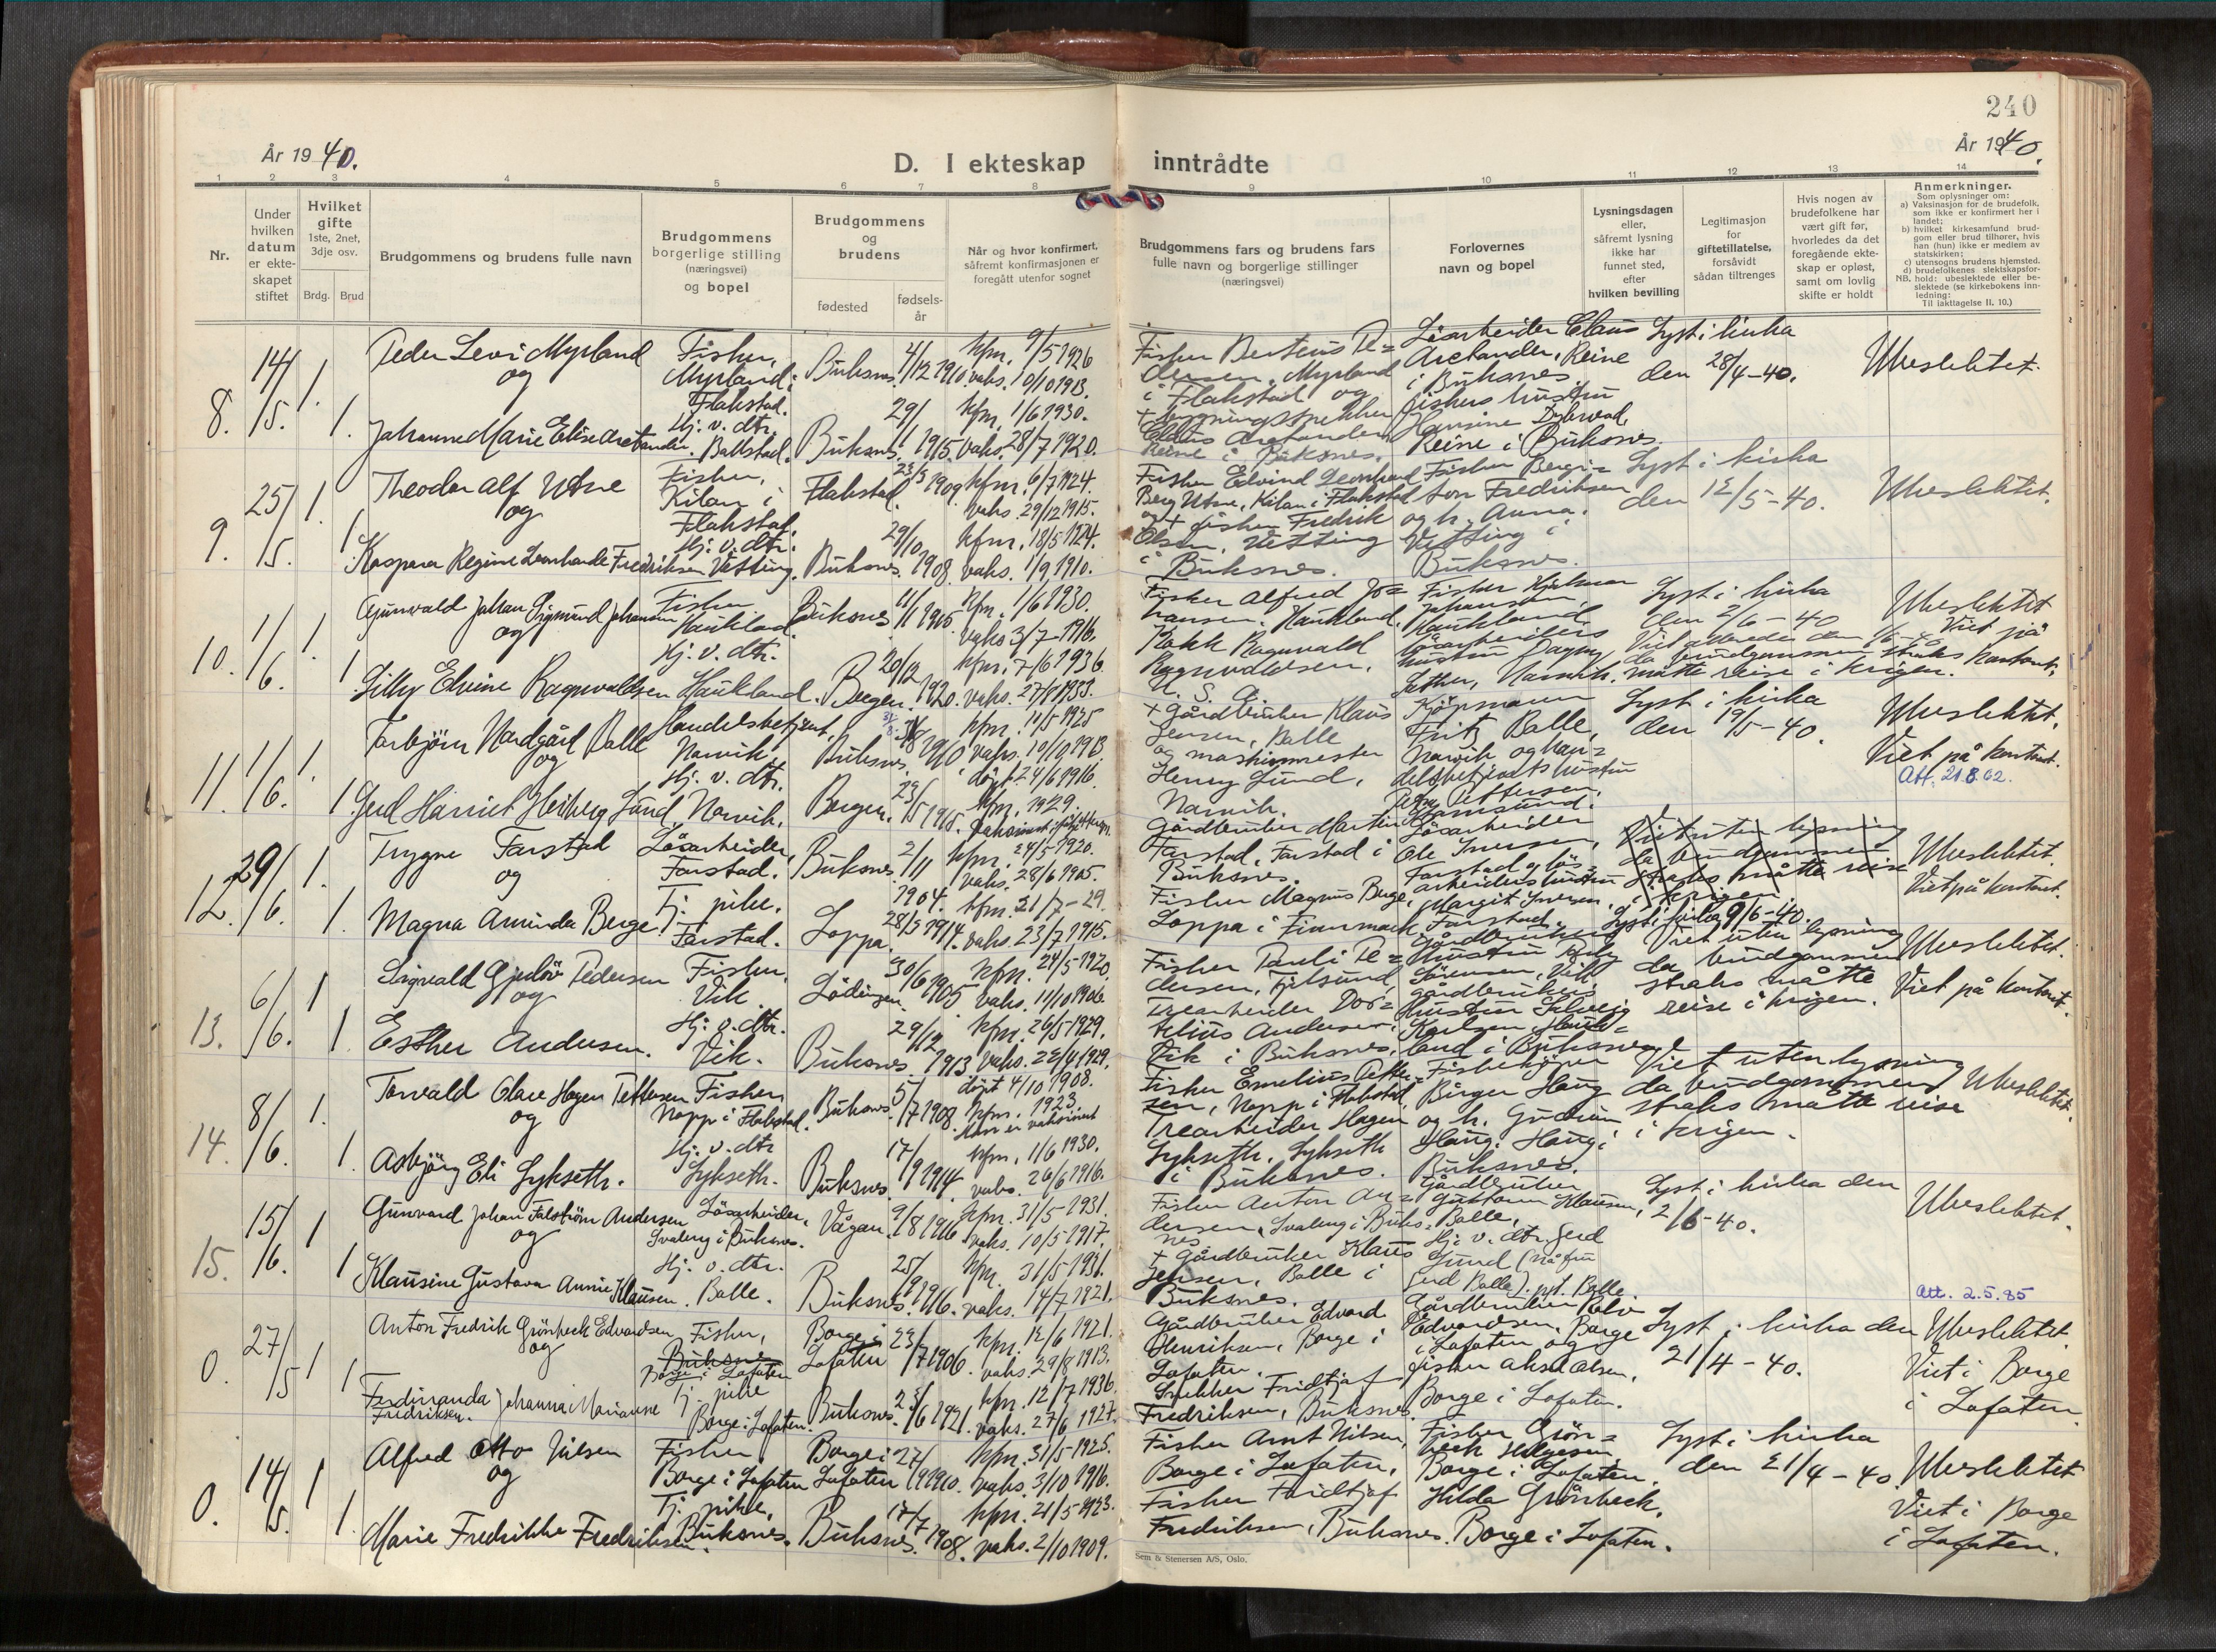 240
År 1940.
D. I ekteskap inntrådte
År 1940.
1 2 3 4 5 6 7 8 9 10 11 12 13 14
Nr.
Under hvilken datum er ekte-skapet stiftet
Hvilket gifte 1ste, 2net, 3dje osv.
Brdg. Brud
Brudgommens og brudens fulle navn
Brudgommens borgerlige stilling (næringsvei) og bopel
Brudgommens og brudens
fødested
fødsels-år
Når og hvor konfirmert, såfremt konfirmasjonen er foregått utenfor sognet
Brudgommens fars og brudens fars fulle navn og borgerlige stillinger (næringsvei)
Forlovernes navn og bopel
Lysningsdagen eller, såfremt lysning ikke har funnet sted, efter hvilken bevilling
Legitimasjon for giftetillatelse, forsåvidt sådan tiltrenges
Hvis nogen av brudefolkene har vært gift før, hvorledes da det foregående ekte-skap er opløst, samt om lovlig skifte er holdt
Anmerkninger.
Som oplysninger om:
a) Vaksinasjon for de brudefolk, som ikke er konfirmert her i landet;
b) hvilket kirkesamfund brud-gom eller brud tilhører, hvis han (hun) ikke er medlem av statskirken;
c) utensogns brudens hjemsted.
d) brudefolkenes slektskapsfor-hold: ubeslektede eller be-slektede (se kirkebokens inn-ledning:
NB. Til iakttagelse II, 10.)
8. 14/5. 1. 1.
Peder Levi Myrland
og
Johanne Marie Elise Arctander.
Fisher, Myrland i Flakstad.
Hj. v. dtr. Ballstad.
Buksnes 4/12 1910 kfm. 9/5 1926 vaks. 10/10 1913.
Buksnes. 29/1 1915. kfm. 1/6 1930. vaks. 28/7 1920.
Fisker Berteus Pe=
dersen, Myrland
i Flakstad og
+ bygningssnekker
Claus Arctander,
Reine i Buksnes.
Løsarbeider Claus
Arctander, Reine
i Buksnes.
fiskers hustru
Hansine Dybwad,
Reine i Buksnes.
Lyst i kirka
den 28/4-40.
Ubeslektet.
9. 25/5. 1. 1.
Theodor Alf Utne
og
Kaspara Regine Leonharde Fredriksen
Fisher, Kilan i Flakstad.
Hj. v. dtr. Vetting.
Flakstad. 23/3 1909 kfm. 6/7 1924. vaks. 29/12 1915.
Buksnes. 29/10 1908. kfm. 18/5 1924. vaks. 1/9 1910.
Fisker Edvind Leonhard
Berg Utne, Kilan i Flakstad
og + fisker Fredrik
Olsen, Vetting
i Buksnes.
Fisker Bergi=
ton Fredriksen
og h. Anna,
Vetting i
Buksnes.
Lyst i kirka
den 12/5-40.
Ubeslektet.
10. 1/6. 1. 1
Gunvald Johan Sigmund Johansen
og
Lilly Elvine Ragnvaldsen
Fisker Haukland.
Hj. v. dtr. Haukland.
Buksnes 11/1 1915 kfm. 1/6 1930. vaks 3/7-1916.
Bergen. 20/12 1920. kfm. 7/6 1936. vaks. 27/8 1933.
Fisker Alfred Jo=
hansen. Haukland.
Kokk Ragnvald
Ragnvaldsen.
U. S. A.
Fisker Hjalmar
Johansen
Haukland.
løsarbeiders
hustru Dagny
Sæther, Narvik.
Lyst i kirka
den 2/6-40
Viet allerede den 1/6-40
da brudgommen straks
måtte reise i krigen.
Ubeslektet
Viet på
kontoret.
11. 1/6. 1. 1
Torbjørn Nordgård Balle
og
Gerd Harriet Heiberg Lund,
Handelsbetjent, Narvik.
Hj. v. dtr. Narvik.
Buksnes. 1910 kfm. 11/5 1925 vaks. 10/10 1913.
Bergen. 23/5 1915. døpt 24/6 1916. kfm. 1929.
+ Gårdbruker Klaus
Jensen, Balle
og maskinmester
Henry Lund,
Narvik.
Kjøpmann
Fritz Balle,
Narvik og han=
delsbetjents hustru
Pettersen,
Lyst i kirka
den 19/5-40.
Ubeslektet.
Viet på kontoret.
Att. 21.8.62.
12. 29/6. 1. 1
Trygve Farstad
og
Magna Aminda Berge.
Løsarbeider, Farstad.
Tj. pike. Farstad.
Buksnes 2/11 1904. kfm. 24/5 1920. vaks. 28/6 1905.
Loppa. 28/5 1914. kfm. 21/7-29. vaks. 23/7 1915.
Gårdbruker Martin
Farstad, Farstad i
Buksnes.
Fisker Magnus Berge,
Loppa i Finnmark
Løsarbeider
Ole Iversen,
Farstad og løs=
arbeiders hustru
Margit Iversen,
Farstad.
Viet uten lysning
da brudgommen
straks måtte reise
i krigen
Lyst i kirka 9/6-40.
Ubeslektet.
Viet på kontoret.
13. 6/6. 1 1
Sigvald Gjeløv Pedersen
og
Esther Andersen.
Fisker. Vik.
Hj. v. dtr. Vik.
Lødingen 30/6 1905 kfm. 24/5 1920. vaks. 11/10 1906.
Buksnes. 29/12 1913 kfm. 26/5 1929. vaks. 22/4 1929.
Fisker Pauli Pe=
dersen, Fjelsund,
Trearbeider Dor=
telius Andersen,
Vik i Buksnes.
Gårdbrukers
hustru
Sørensen, Vik
gårdbrukers
hustru Solveig
Karlsen, Hauk=
land i Buksnes.
Viet uten lysning
da brudgommen
straks måtte
reise i krigen.
Ubeslektet.
Viet på kontoret.
14. 8/6. 1. 1.
Torvald Olave Hagen Pettersen
og
Asbjørg Eli Sykseth.
Fisker Napp i Flakstad.
Hj. v. dtr Sykseth.
Buksnes. 5/7 1908. døpt 4/10 1908. kfm. 1923. Han er vaksinert
Buksnes. 17/9 1914 kfm. 1/6 1930. vaks. 26/6 1916.
Fisker Emelius Petter=
sen, Napp i Flakstad.
Trearbeider Hagen
Sykseth, Sykseth
i Buksnes.
Fiskekjøper
Birger Haug
og h. Gudrun
Haug, Haug i
Buksnes.
Viet uten lysning
da brudgommen
straks måtte reise
i krigen.
Ubeslektet.
15. 15/6. 1 1
Gunvard Johan Falstrøm Andersen
og
Klausine Gustava Annie Klausen.
Løsarbeider, Svaleng i Buksnes.
Hj. v. dtr. Balle.
Vågan. 9/8 1916 kfm. 31/5 1931. vaks. 10/5 1917.
Buksnes. 25/9 1916. kfm. 31/5 1931. vaks. 14/7 1921.
Fisker Anton An=
dersen, Svaleng i Buks=
nes
+ Gårdbruker Klaus
Jensen, Balle i
Buksnes.
Gårdbruker
Guttorm Klausen,
Balle,
Hj. v. dtr. Gerd
Lund (nå fru
Gerd Balle). pt. Balle
Lyst i kirka den
2/6-40.
Ubeslektet.
Att. 2.5.85
0. 27/5 1 1
Anton Fredrik Grönbeck Edvardsen
og
Ferdinanda Johanna Marianne
Fredriksen.
Fisker, Buksnes Borge i Lofoten
Tj. pike Borge i Lofoten.
Borge i Lofoten 23/7 1906. kfm. 12/6 1921. vaks. 29/8 1913.
Buksnes. 23/6 1921. kfm. 12/7 1936. vaks. 27/6 1927.
Gårdbruker Edvard
Henriksen, Borge i
Lofoten.
Snekker Fridtjof
Fredriksen, Buksnes.
Gårdbruker
Edvardsen, Borge
i Lofoten og
fisker Aksel Olsen,
Borge i Lofoten.
Lyst i kirka den
21/4-40.
Ubeslektet.
Viet i Borge
i Lofoten.
0. 14/5. 1 1.
Alfred Otto Nilsen
og
Marie Fredrikke Fredriksen.
Fisker Borge i Lofoten
Tj. pike, Buksnes.
Borge i Lofoten 27/9 1910. kfm. 31/5 1925. vaks. 3/10 1916.
Buksnes. 17/7 1908. kfm. 21/5 1923. vaks. 2/10 1909.
Fisker Arnt Nilsen,
Borge i Lofoten,
Fisker Fridtjof
Fredriksen, Buksnes.
Fisker Grön=
beck
Borge i Lofoten.
Hilda Grönbeck,
Borge i Lofoten.
Lyst i kirka
den 21/4-40.
Ubeslektet
Viet i Borge
i Lofoten.
Sem & Stenersen A/S, Oslo.